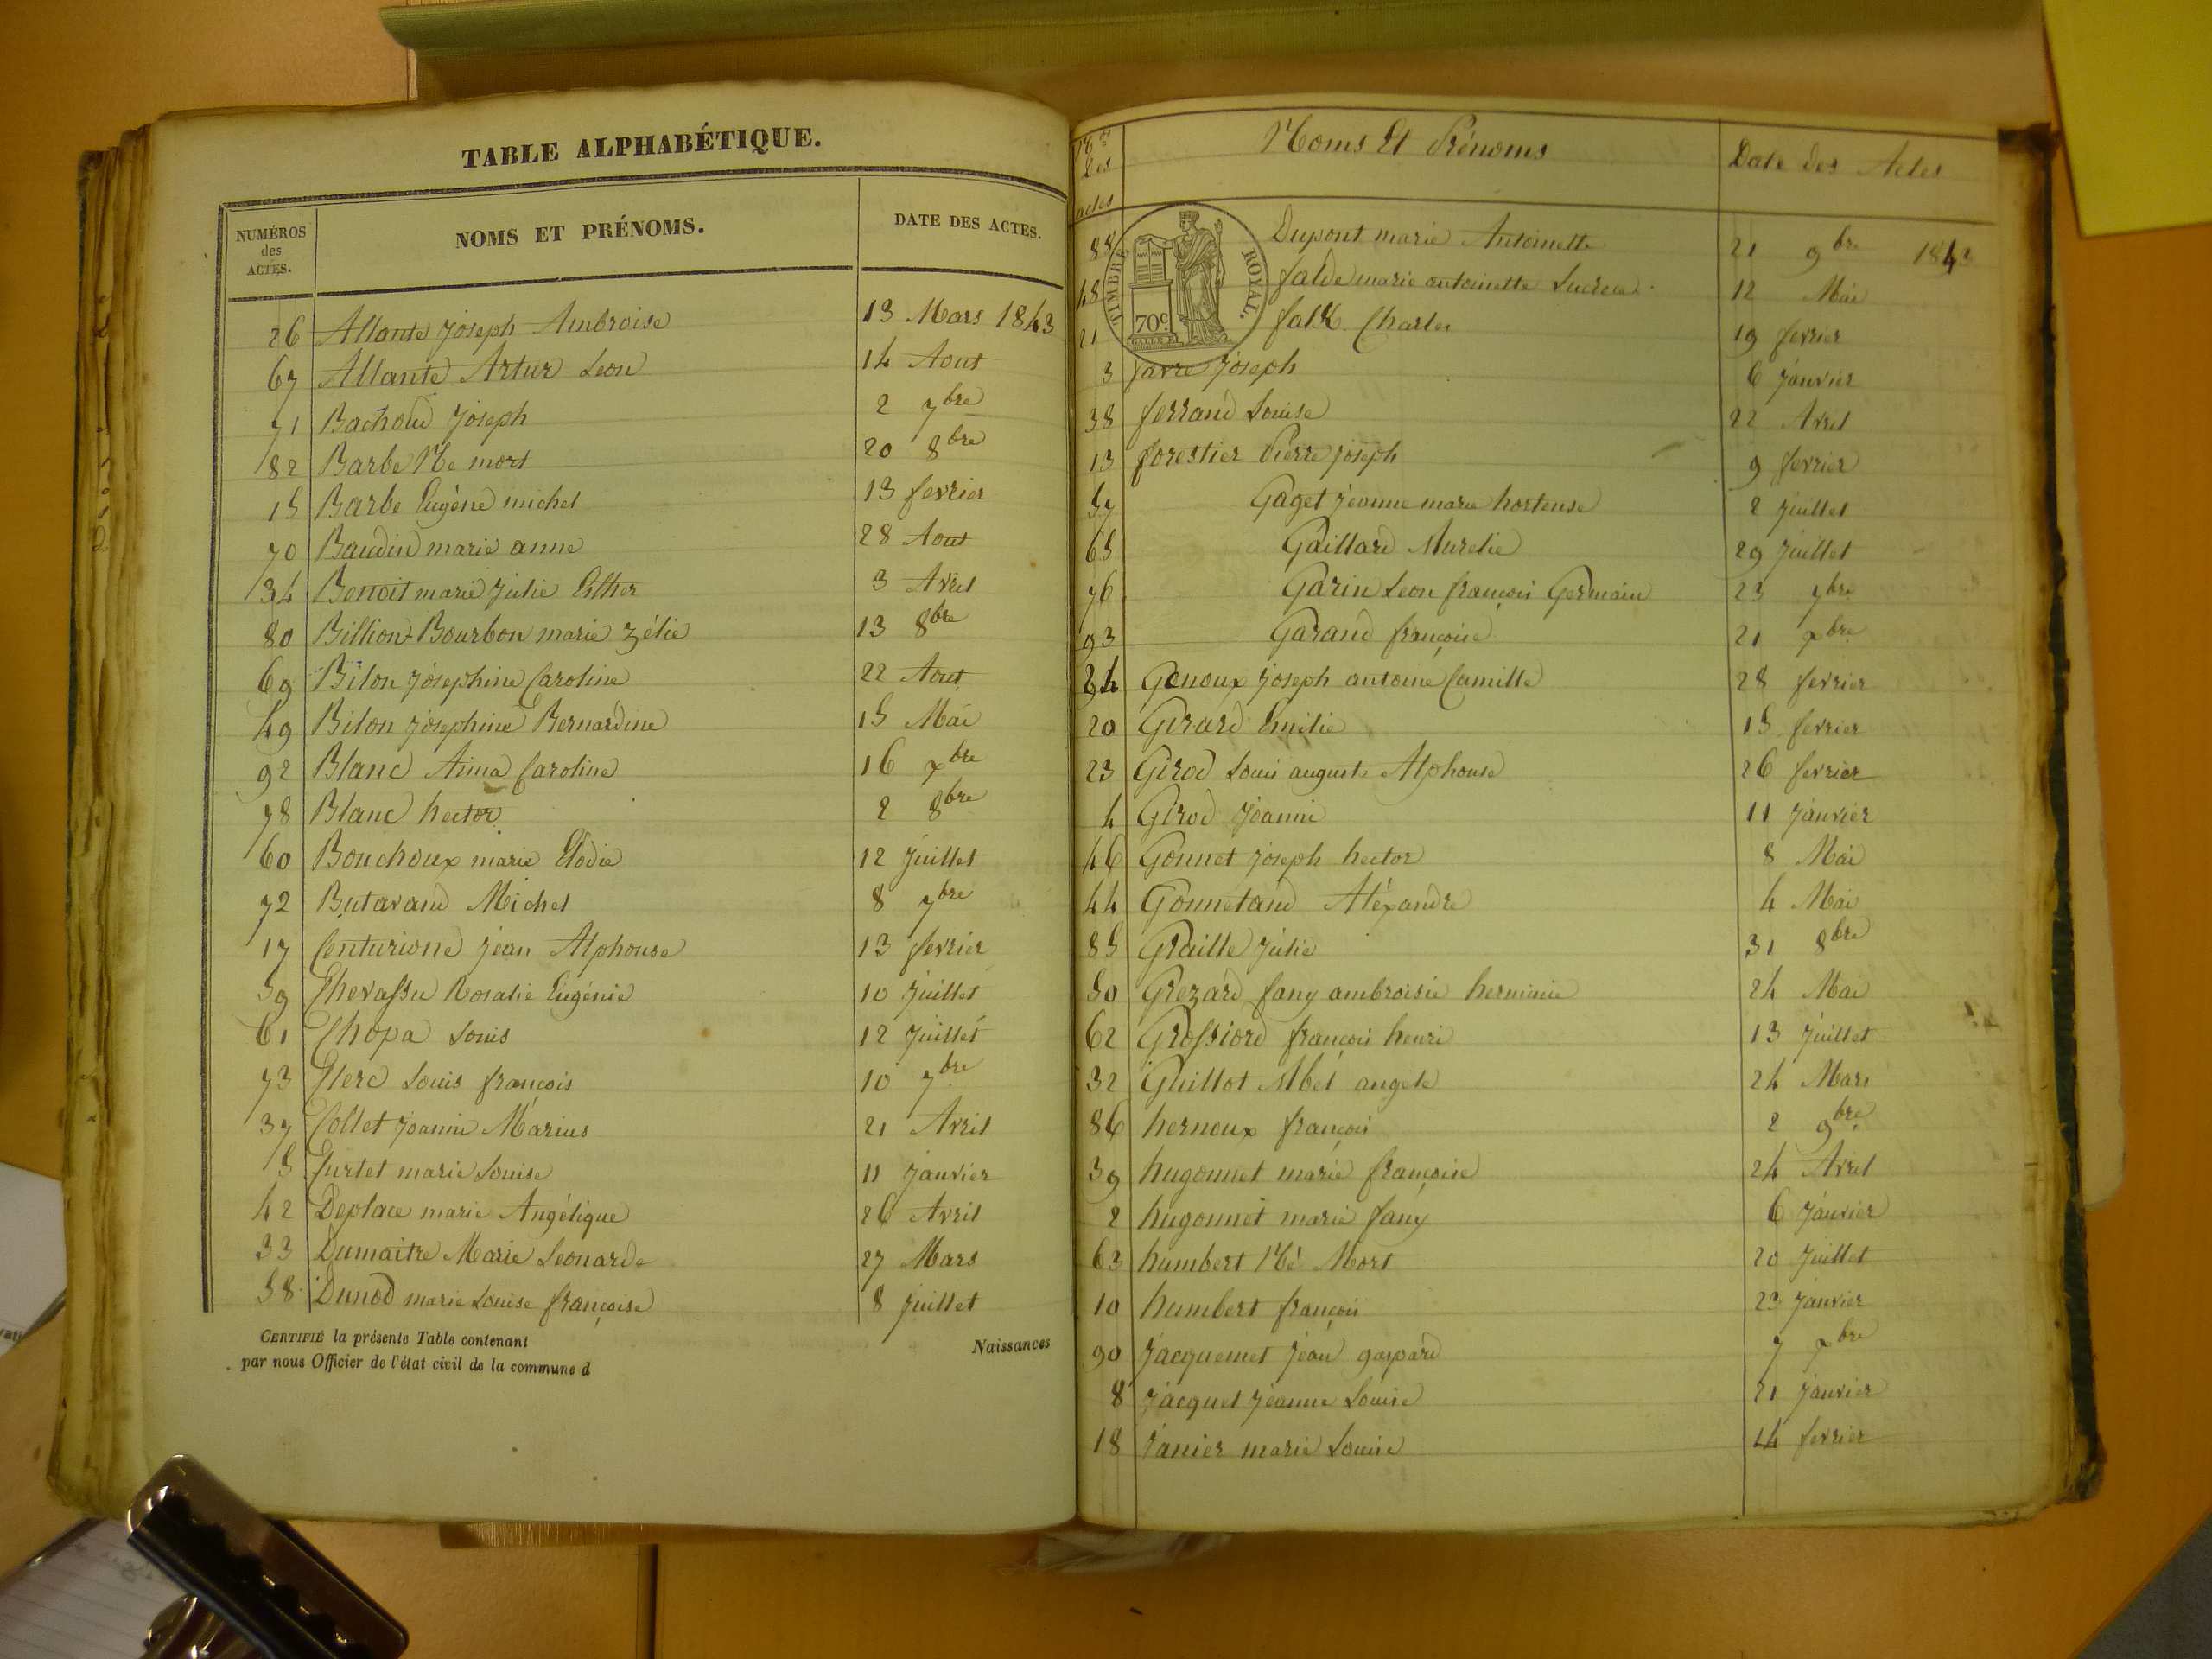 TABLE ALPHABÉTIQUE.
NUMÉROS des ACTES. NOMS ET PRÉNOMS. DATE DES ACTES.
26 Allante joseph Ambroise 13 Mars 1843
67 Allante Artur Leon 14 Aout
71 Bachoud joseph 2 7bre
82 Barbe Né mort 20 8bre
15 Barbe Eugène michel 13 fevrier
70 Baudin marie anne 28 Aout
34 Benoit marie julie Esther 3 Avril
80 Billion-Bourbon marie zélie 13 8bre
69 Bilon joséphine Caroline 22 Aout
49 Bilon joséphine Bernardine 15 Mai
92 Blanc Anna Caroline 16 xbre
78 Blanc hector 2 8bre
60 Bouchoux marie Elodie 12 juillet
72 Butavand Michel 8 7bre
17 Centurione jean Alphonse 13 fevrier
59 Chevassu Rosalie Eugénie 10 juillet
61 Chopa Louis 12 juillet
73 Clerc Louis françois 10 7bre
37 Collet joanni Marius 21 Avril
5 Curtet marie Louise 11 janvier
42 Deplace marie Angélique 26 Avril
33 Dumaitre Marie Leonarde 27 Mars
58 Dunod marie Louise françoise 8 juillet
CERTIFIÉ la présente Table contenant Naissances
par nous Officier de l'état civil de la commune d
Nos Des actes Noms Et Prénoms Date des Actes
TIMBRE ROYAL.
70c
88 Dupont marie Antoinette 21 9bre 1843
48 falde marie antoinette Lucrece 12 Mai
21 falk Charles 19 fevrier
3 favre joseph 6 janvier
38 ferrand Louise 22 Avril
13 forestier Pierre joseph 9 fevrier
57 Gaget jeanne marie hortense 2 juillet
65 Gaillard Aurelie 29 juillet
76 Garin Leon françois Germain 23 7bre
93 Garand françoise 21 xbre
24 Genoux joseph antoine Camille 28 fevrier
20 Girard Emilie 15 fevrier
23 Girod Louis auguste Alphonse 26 fevrier
4 Girod joanni 11 janvier
46 Gonnet joseph hector 8 Mai
44 Gonnetand Aléxandre 4 Mai
85 Graille julie 31 8bre
50 Grezard fany ambroisie herminie 24 Mai
62 Grossiord françois henri 13 juillet
32 Guillot Abel angele 24 Mars
86 hernoux françois 2 9bre
39 hugonnet marie françoise 24 Avril
2 hugonnet marie fany 6 janvier
63 humbert Né Mort 20 juillet
10 humbert françois 23 janvier
90 jacquemet jean gaspard 7 xbre
8 jacquet jeanne Louise 21 janvier
18 janier marie Louise 14 fevrier